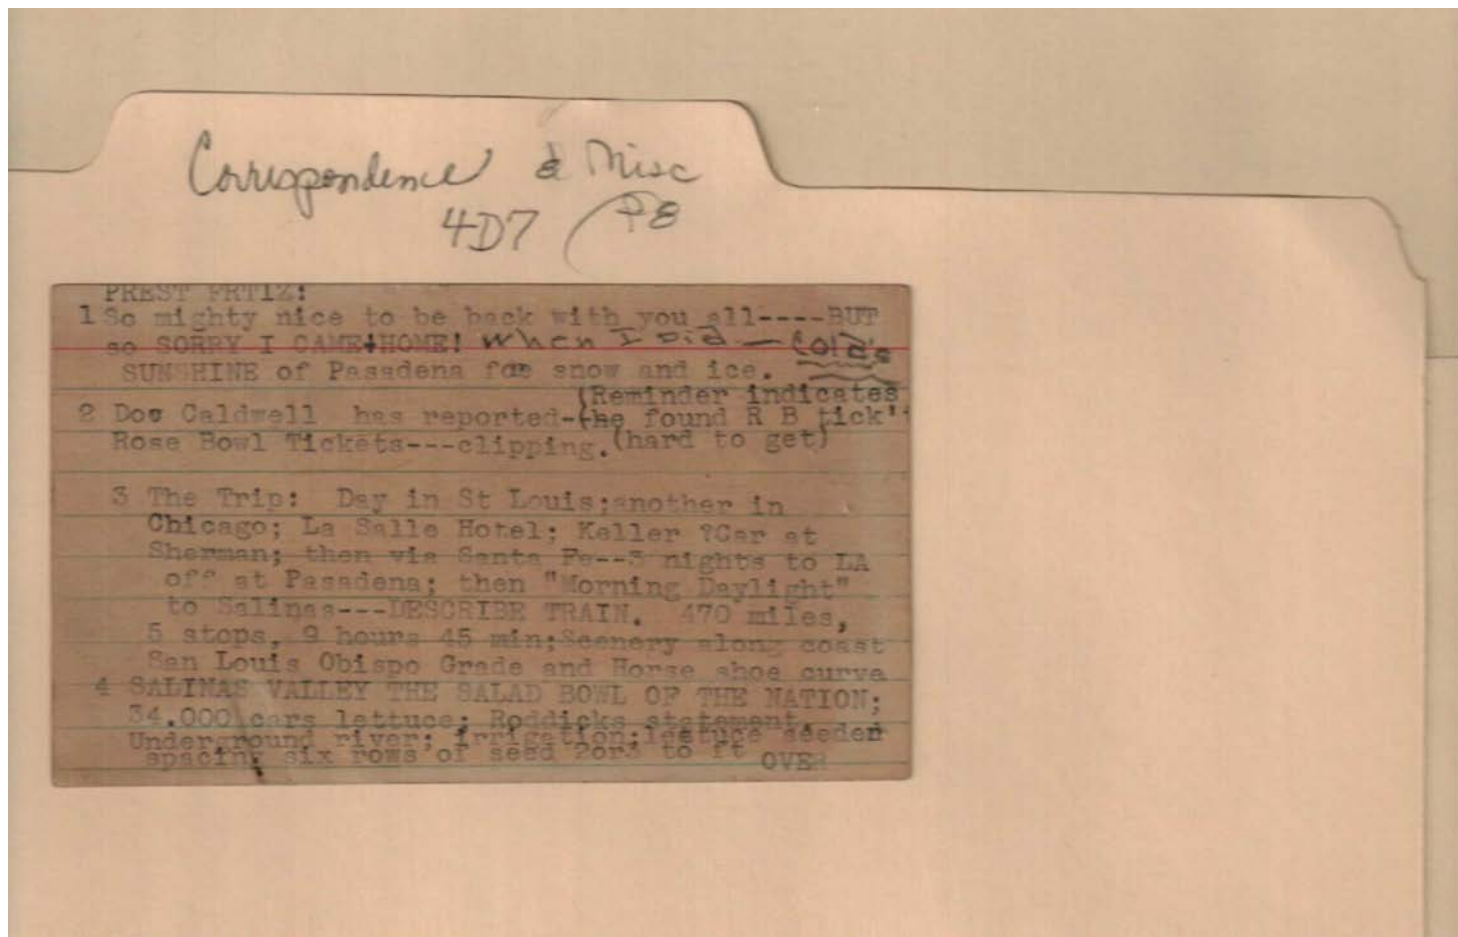 Correspondence & Misc
4D7 (P8
PREST FRTIZ:
1 So mighty nice to be back with you all----BUT
so SORRY I CAME HOME! When I Did — Cold's
SUNSHINE of Pasadena for snow and ice.
(Reminder indicates
2 Doc Caldwell has reported-(he found R B tick'
Rose Bowl Tickets---clipping.(hard to get)
3 The Trip: Day in St Louis;another in
Chicago; La Salle Hotel; Keller ?Car at
Sherman; then via Santa Fe--3 nights to LA
off at Pasadena; then "Morning Daylight"
to Salinas---DESCRIBE TRAIN. 470 miles,
5 stops, 9 hours 45 min;Scenery along coast
San Louis Obispo Grade and Horse shoe curve
4 SALINAS VALLEY THE SALAD BOWL OF THE NATION;
34.000 cars lettuce; Roddicks statement,
Underground river; irrigation;leetuce seeded
spacing six rows of seed 2or3 to ft OVER